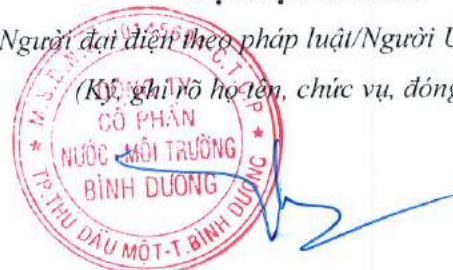 Người đại diện theo pháp luật/Người U
(Ký, ghi rõ họ tên, chức vụ, đóng
CÔNG TY
CỔ PHẦN
NƯỚC - MÔI TRƯỜNG
BÌNH DƯƠNG
TP.THỦ DẦU MỘT-T.BÌNH DƯƠNG